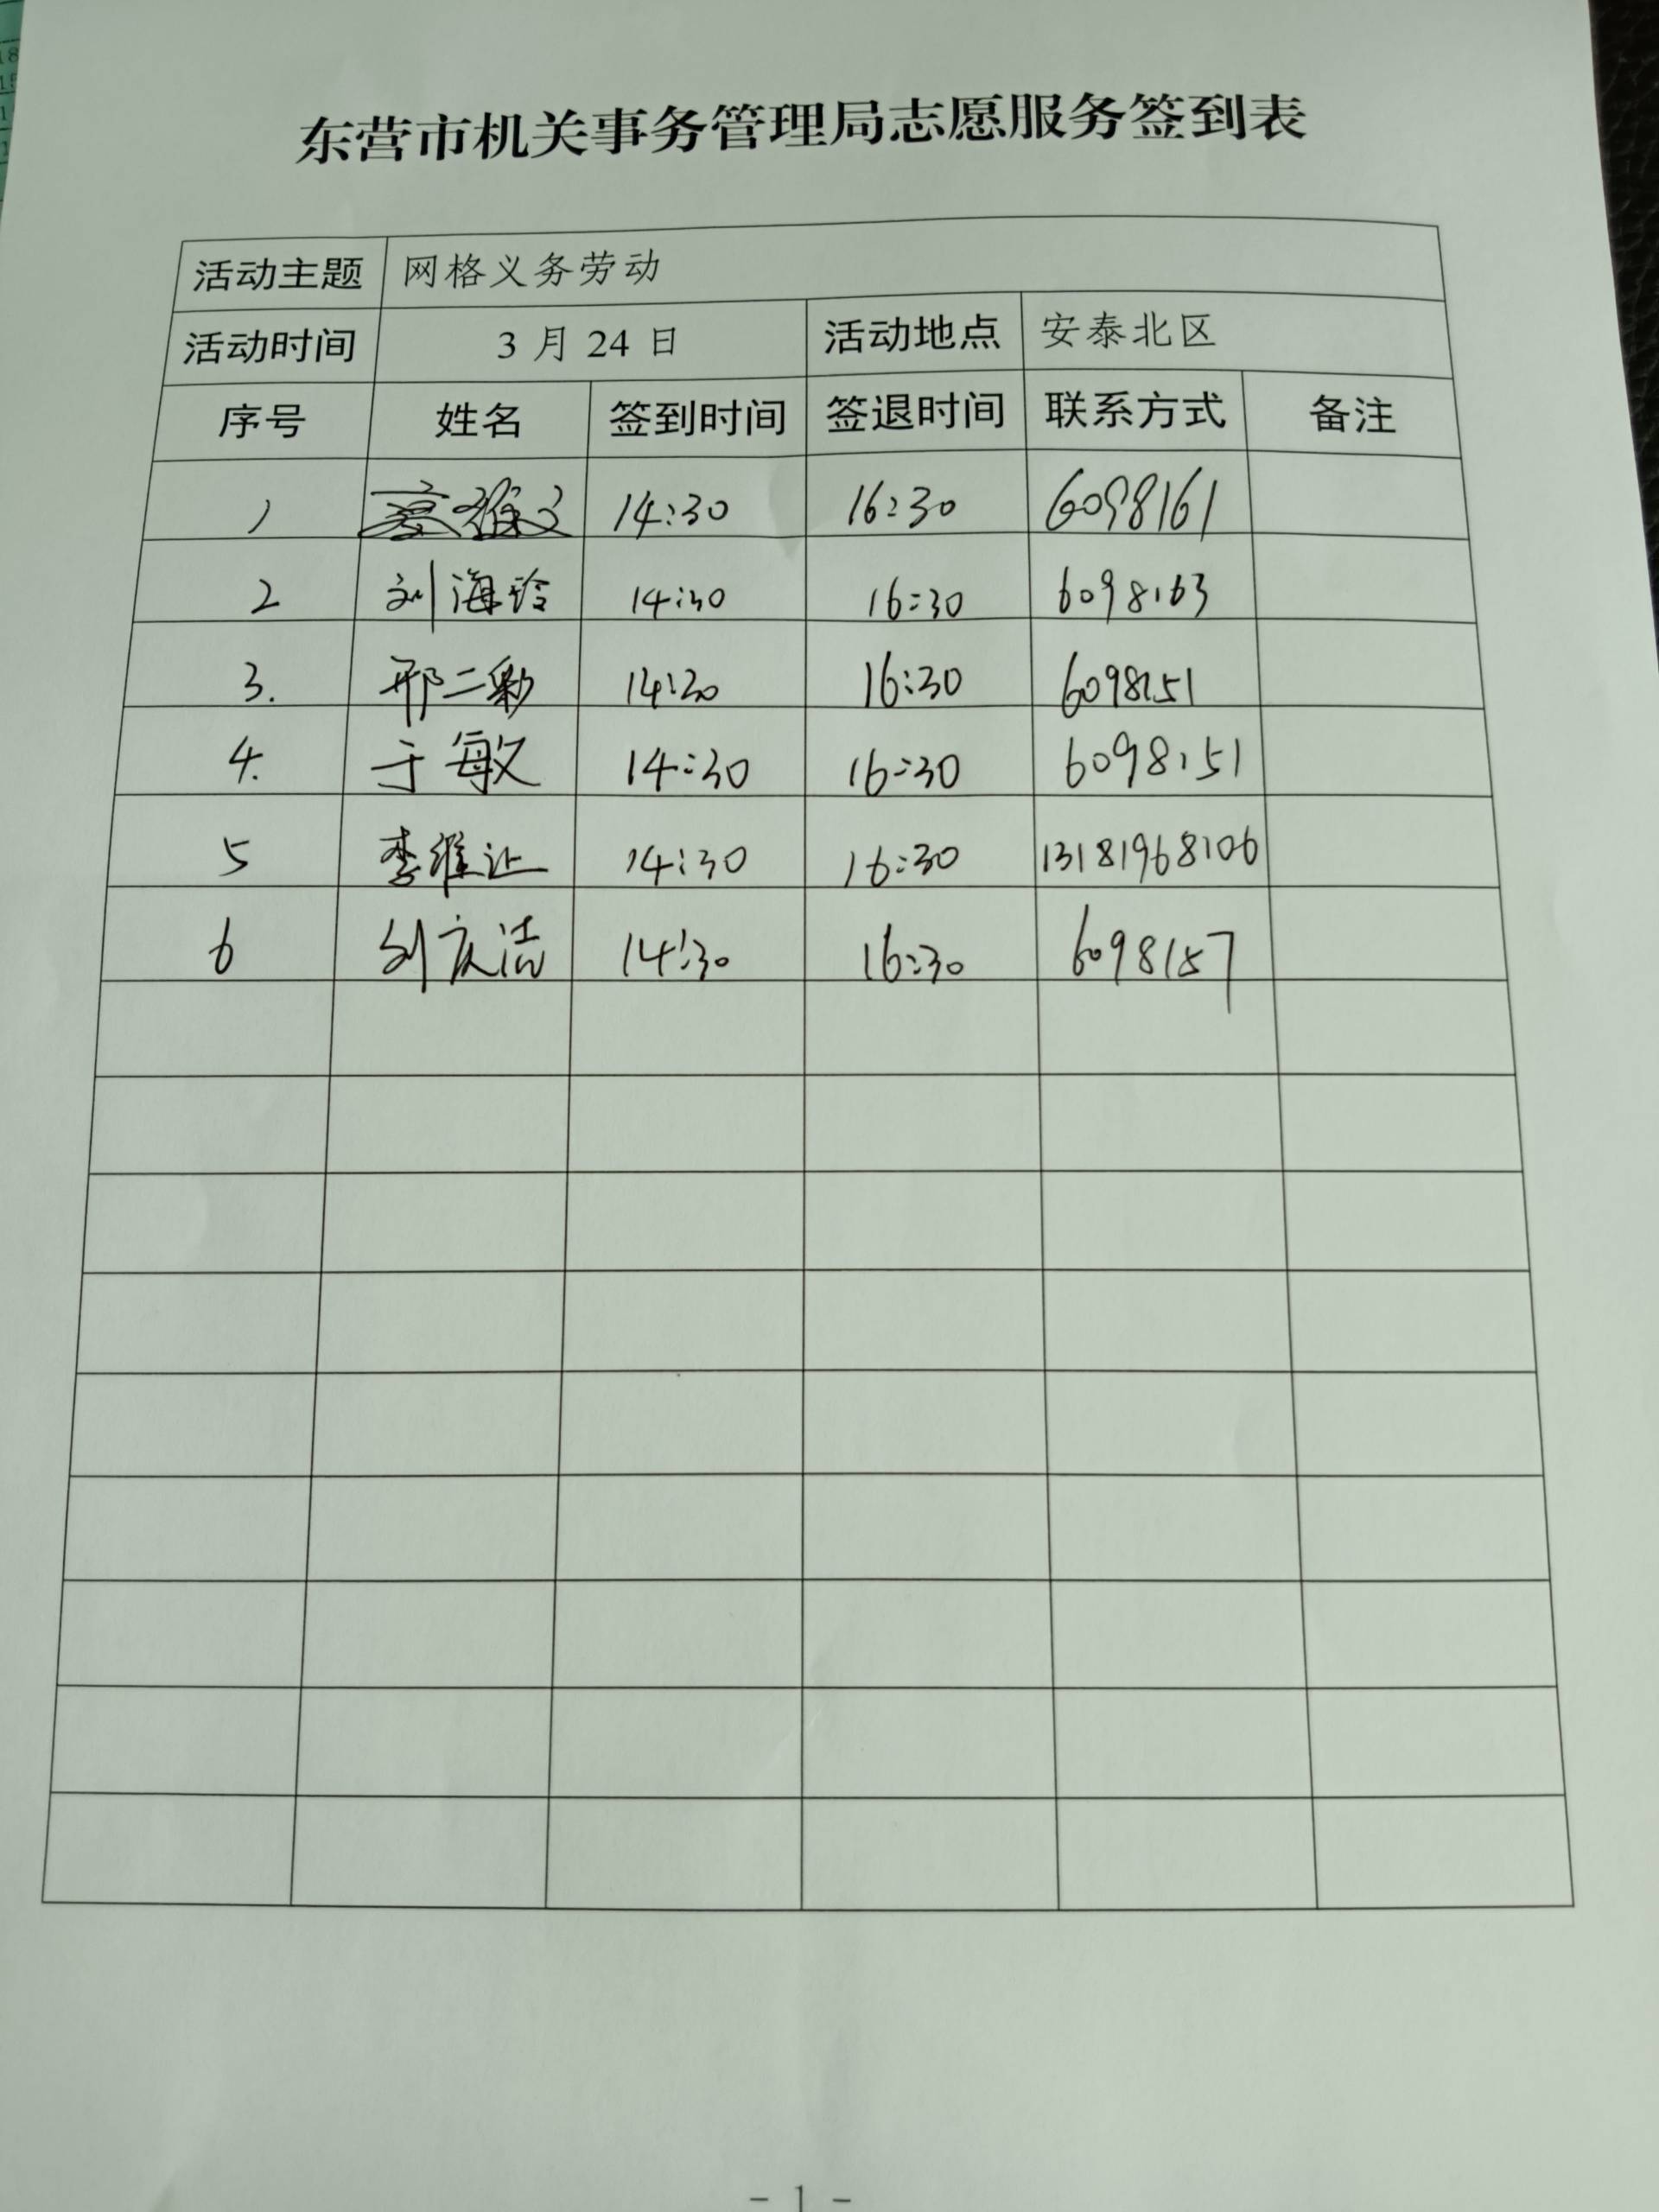 东营市机关事务管理局志愿服务签到表
活动主题 网格义务劳动
活动时间 3月24日 活动地点 安泰北区
序号 姓名 签到时间 签退时间 联系方式 备注
1 14:30 16:30 6098161
2 刘海玲 14:30 16:30 6098163
3. 邢二勤 14:30 16:30 6098151
4. 于敏 14:30 16:30 6098151
5 李维让 14:30 16:30 13181968106
6 刘庆洁 14:30 16:30 6098157
- 1 -